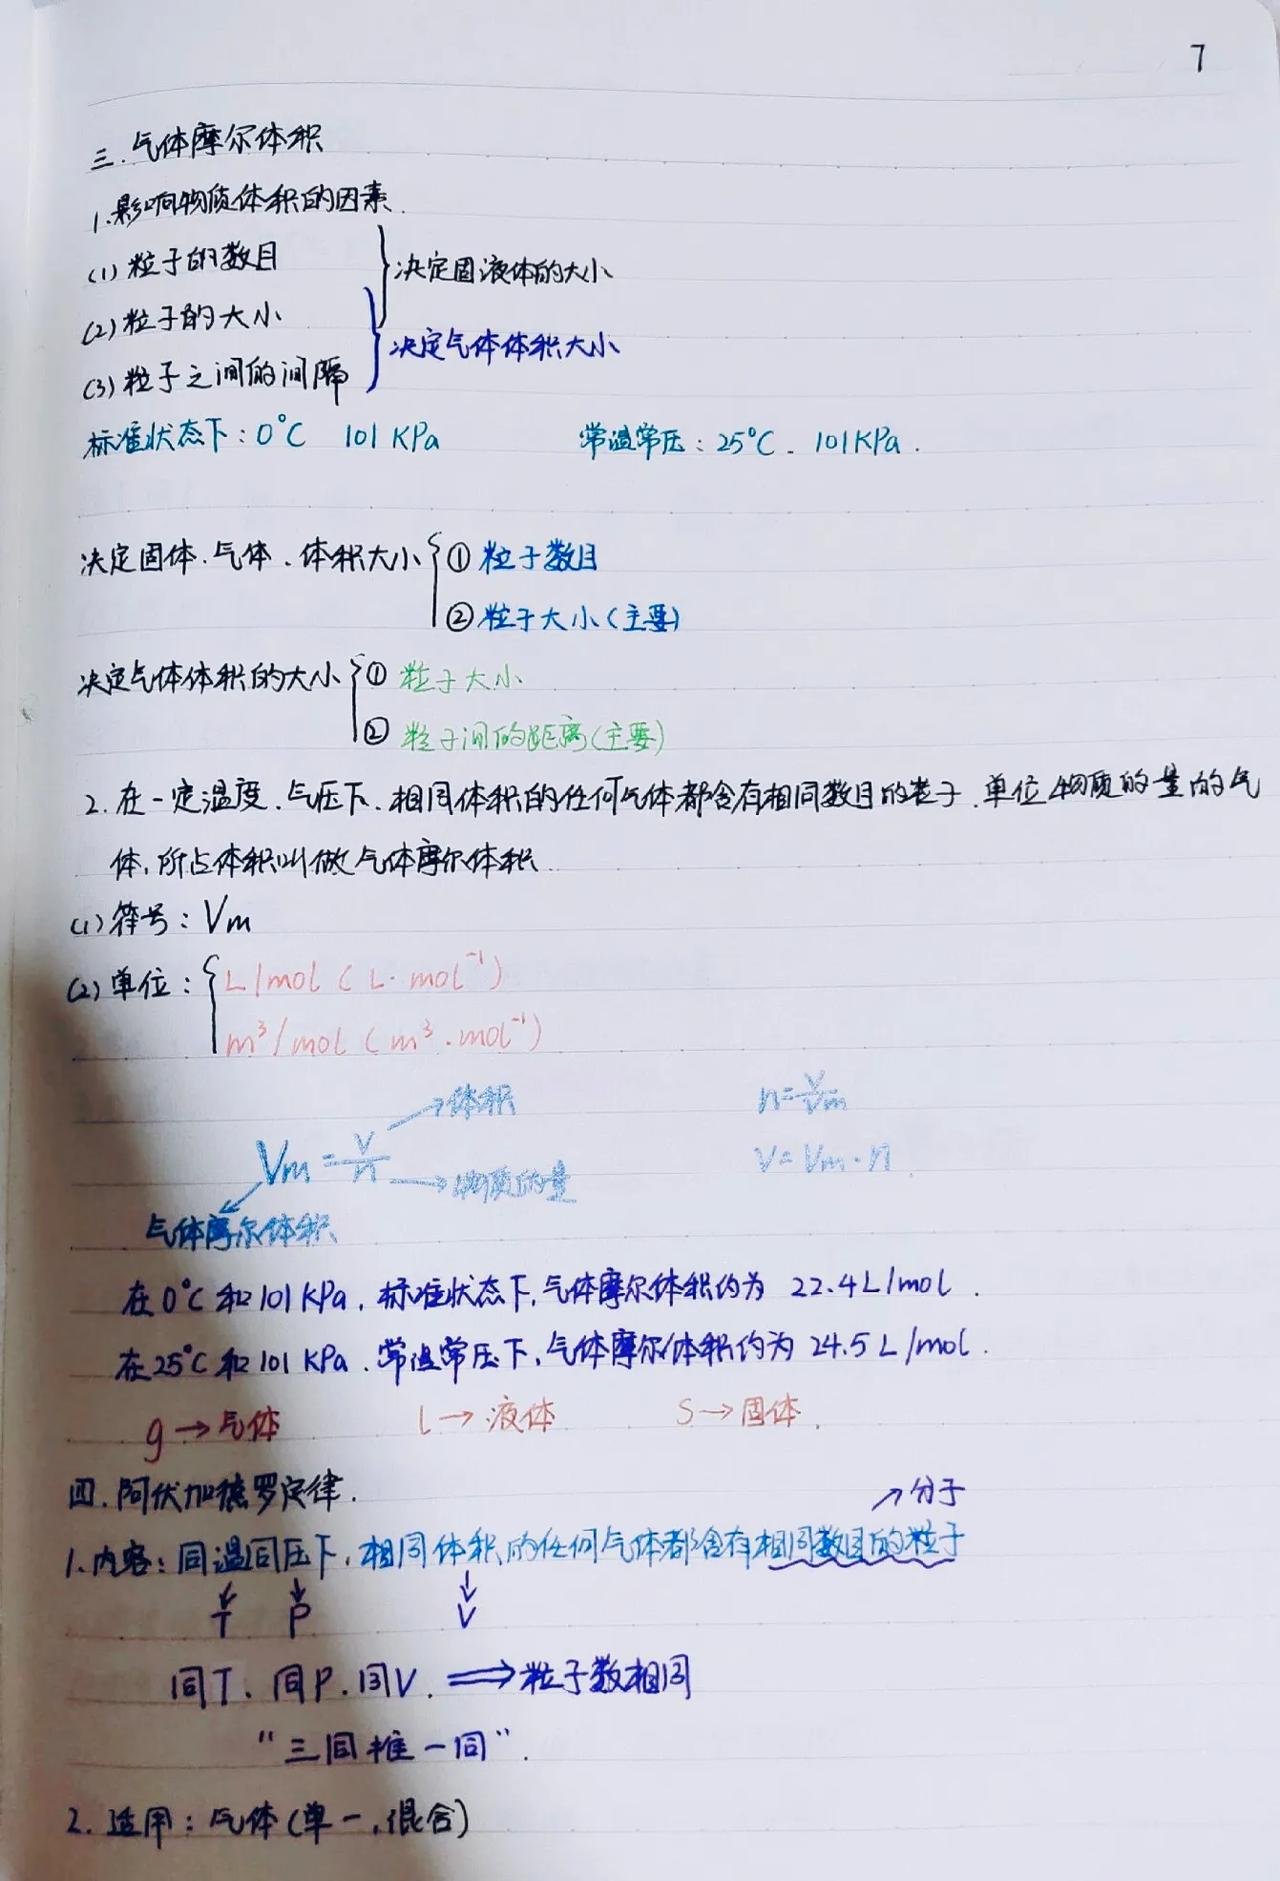 7
三.气体摩尔体积
1.影响物质体积的因素.
(1)粒子的数目
决定固液体的大小
(2)粒子的大小
决定气体体积大小
(3)粒子之间的间隔
标准状态下:0°C 101 KPa 常温常压:25°C. 101KPa.
决定固体.气体.体积大小 ①粒子数目
②粒子大小(主要)
决定气体体积的大小 ①粒子大小
②粒子间的距离(主要)
2.在一定温度.气压下、相同体积的任何气体都含有相同数目的粒子.单位物质的量的气
体,所占体积叫做气体摩尔体积.
(1)符号:Vm
(2)单位: L/mol (L·mol⁻¹)
m³/mol (m³·mol⁻¹)
→体积 n=V/Vm
Vm=V/n →物质的量 V=Vm·n.
气体摩尔体积
在0°C和101KPa,标准状态下,气体摩尔体积约为 22.4L/mol.
在25°C和101KPa.常温常压下,气体摩尔体积约为24.5L/mol.
g→气体 l→液体 S→固体.
四.阿伏加德罗定律.
↗分子
1.内容:同温同压下,相同体积的任何气体都含有相同数目的粒子
T P V
同T.同P.同V.⟹粒子数相同
"三同推一同".
2.适用:气体(单一,混合)